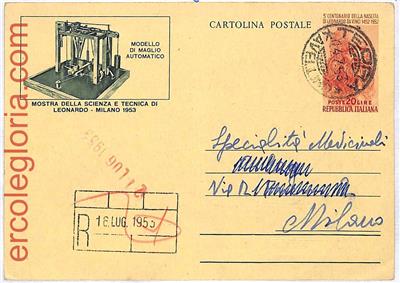 CARTOLINA POSTALE
MODELLO
DI MAGLIO
AUTOMATICO
MOSTRA DELLA SCIENZA E TECNICA DI
LEONARDO - MILANO 1953
5° CENTENARIO DELLA NASCITA
DI LEONARDO DA VINCI 1452-1952
POSTE 20 LIRE
REPUBBLICA ITALIANA
Specialità Medicinali
Via
Milano
21 LUG 1953
R
16. LUG. 1953
ercolegloria.com